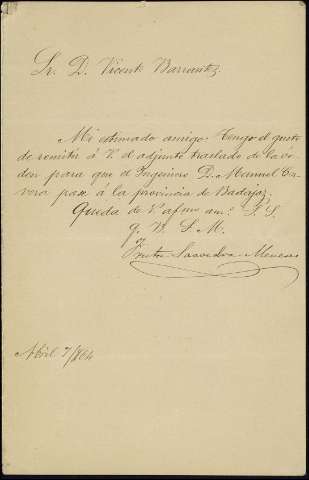 Sr. D. Vicente Barrantes
Mi estimado amigo: Tengo el gusto
de remitir á V. el adjunto traslado de la ór-
den para que el Ingeniero D. Manuel Ca-
vera pase á la provincia de Badajoz.
Queda de V. afmo am.º S. S.
q. B. S. M.
Saavedra Meneses
Abril 7/864